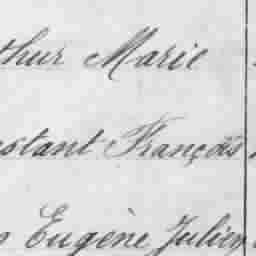 thur Marie
nstant François
Eugène Julien